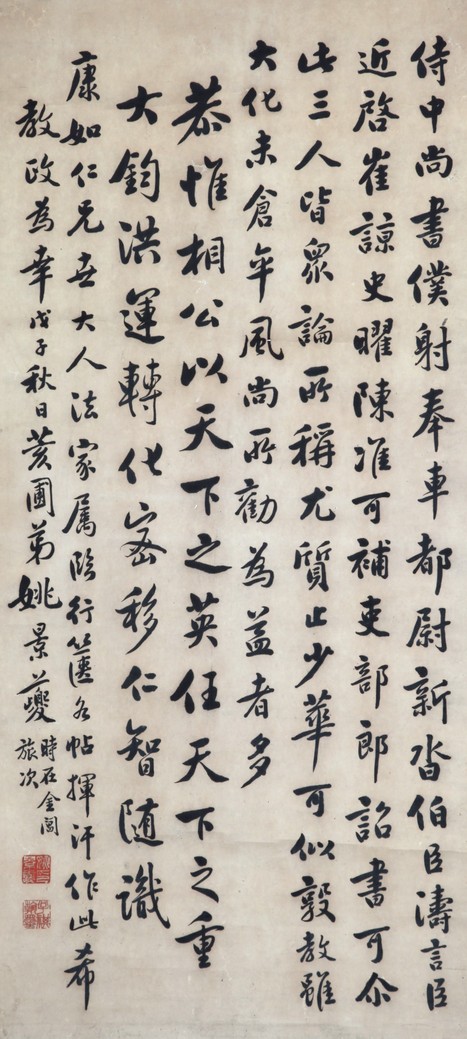 侍中尚書僕射奉車都尉新沓伯臣濤言臣
近啓崔諒史曜陳淮可補吏部郎詔書可尒
此三人皆眾論所稱尤質止少華可以敦教雖
大化未倉卒風尚所勸為益者多
恭惟相公以天下之英任天下之重
大鈞洪運轉化密移仁智隨識
康如仁兄世大人法家屬臨行篋各帖揮汗作此希
教政為幸戊子秋日黃圃弟姚景夔
時在金閶
旅次